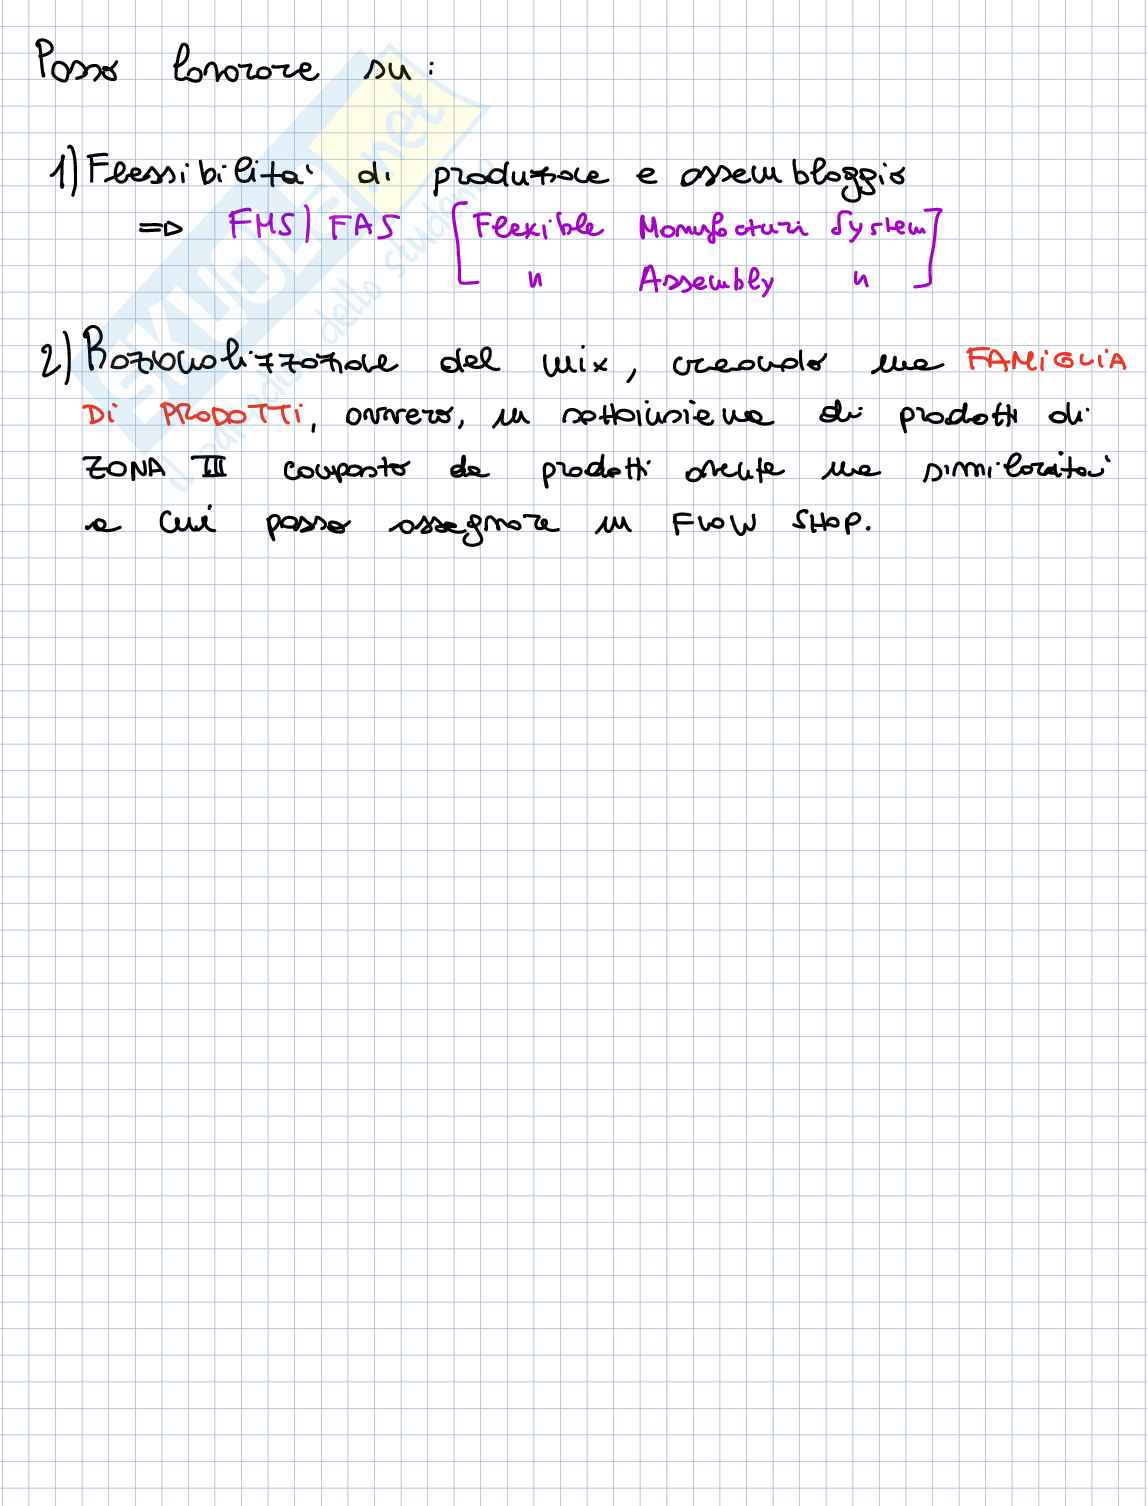 Posso lavorare su:
1) Flessibilita' di produzione e assemblaggio
=> FMS | FAS [Flexible Manufacturi System]
" Assembly "
2) Razionalizzazione del mix, creando una FAMIGLIA
DI PRODOTTI, ovvero, un sottoinsieme di prodotti di
ZONA III composto da prodotti avente una similarita'
a cui posso assegnare un FLOW SHOP.
SKUOLA.net
dello studente